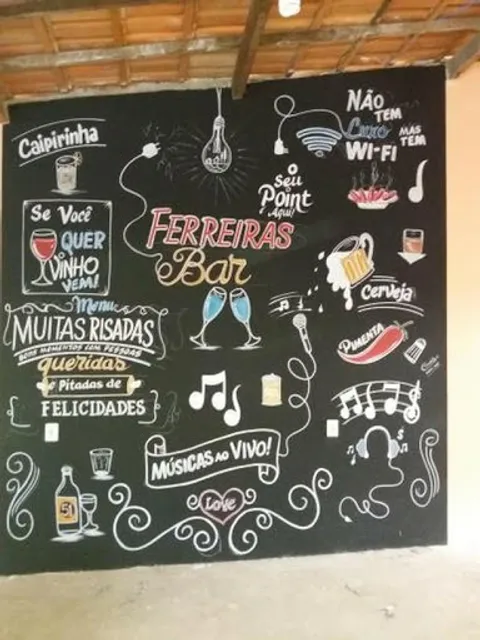 Caipirinha
NÃO
TEM
Luxo
MAS
TEM
WI-FI
Seu
Point
Aqui!
Se Você
QUER
VINHO
VEM!
FERREIRAS
Bar
Cerveja
Menu
MUITAS RISADAS
BONS MOMENTOS COM PESSOAS
queridas
e Pitadas de
FELICIDADES
PIMENTA
MÚSICAS AO VIVO!
51
Love